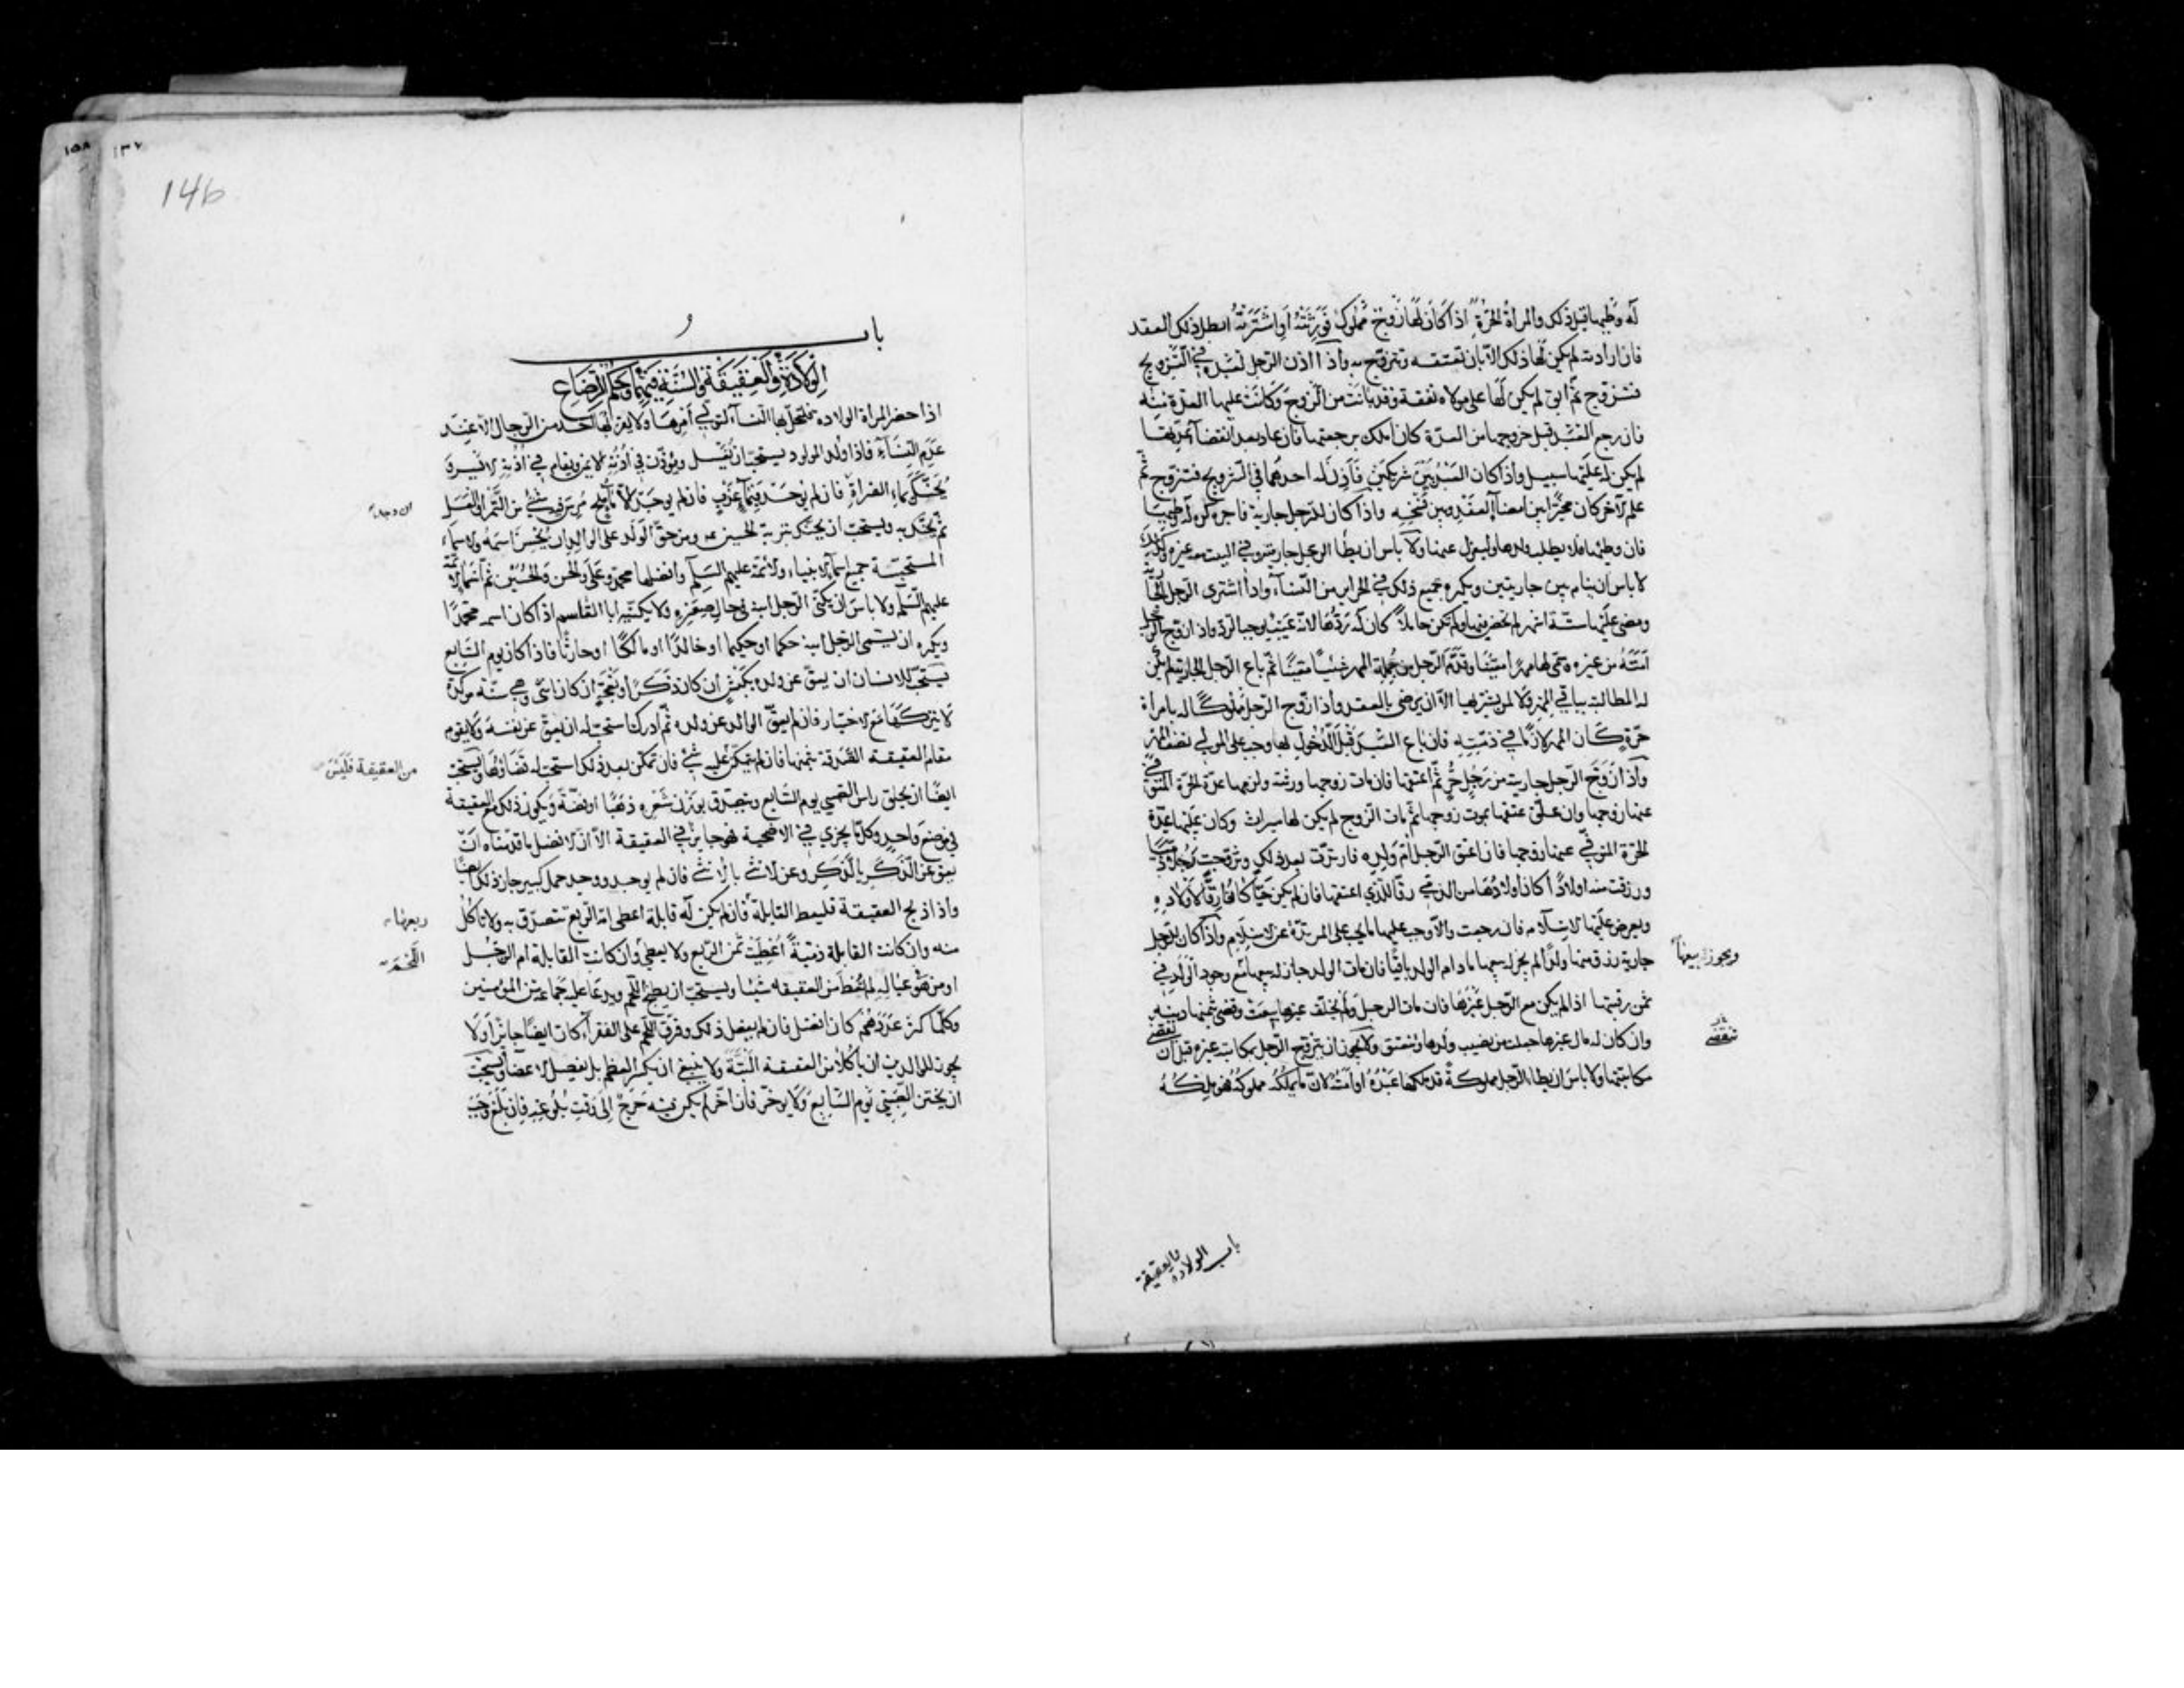 له وطيها قبل ذلك والمرأة الحرة اذا كان لها زوج مملوك فورثته او اشترته ابطل ذلك العقد
فان ارادته لم يكن لها ذلك الا بان تعتقه وتتزوج به واذا اذن الرجل لعبده في التزويج
فتزوج ثم ابق لم يكن لها على مولاه نفقة وقد بانت من الزوج وكانت عليها العدة منه
فان رجع العبد قبل خروجها من العدة كان املك برجعتها فان عاد بعد انقضاء عدتها
لم يكن له عليها سبيل واذا كان العبد بين شريكين فاذن له احدهما في التزويج فتزوج ثم
علم الآخر كان مخيرا بين امضاء العقد وبين فسخه واذا كان للرجل جارية فاجرة كره له وطيها
فان وطيها فلا يطلب ولدها وليعزل عنها ولا باس ان يطأ الرجل جاريته وفي البيت معه غيره وكذلك
لا باس ان ينام بين جاريتين ويكره جميع ذلك في الحراير من النساء واذا اشترى الرجل الجارية
ومضى عليها ستة اشهر لم تحض فيها ولم تكن حاملا كان له ردها لانه عيب يوجب الرد واذا زوج الرجل
امته من غيره وسمى لها مهرا معينا وقدم الرجل من جملة المهر شيئا معينا ثم باع الرجل الجارية لم يكن
له المطالبة بباقي المهر ولا لمن يشتريها الا ان يرضى بالعقد واذا زوج الرجل مملوكا له بامرأة
حرة كان المهر لازما في ذمته فان باع العبد قبل الدخول بها وجب على المولى نصف المهر
واذا زوج الرجل جاريته من رجل حر ثم اعتقها فان مات زوجها ورثته ولزمها عدة الحرة المتوفى
عنها زوجها وان علق عتقها بموت زوجها ثم مات الزوج لم يكن لها ميراث وكان عليها عدة
الحرة المتوفى عنها زوجها فان اعتق الرجل ام ولده فارتدت بعد ذلك وتزوجت رجلا ذميا
ورزقت منه اولادا كان اولادها من الذمي رقا للذي اعتقها فان لم يكن حيا كانوا رقا لاولاده
ويعرض عليها الاسلام فان رجعت والا وجب عليها ما يجب على المرتدة عن الاسلام واذا كان للرجل
جارية رزق منها ولدا لم يجز له بيعها ما دام الولد باقيا فان مات الولد جاز له بيعها مع وجود الولد في
ويجوز بيعها
ثمن رقبتها اذا لم يكن مع الرجل غيرها فان مات الرجل ولم يخلف غيرها بيعت وقضى بثمنها دينه
وان كان له مال غيرها جعلت من نصيب ولدها وتنعتق ولا يجوز ان يتزوج الرجل بمكاتبة غيره قبل ان تقضي
تنقضي
مكاتبتها ولا باس ان يطا الرجل مملوكة قد ملكها عبده او امته لان ما يملكه مملوكه فهو ملكه
باب الولادة والعقيقة
١٥٨ ١٣٧
146
باب
الولادة والعقيقة والسنة فيهما وحكم الرضاع
اذا حضر المرأة الولادة فليخل بها النساء لتولي امرها ولا يقربها احد من الرجال الا عند
عدم النساء فاذا ولد المولود يستحب ان يغسل ويؤذن في اذنه الايمن ويقام في اذنه الايسر و
يحنك بماء الفراة فان لم يوجد فبماء عذب فان لم يوجد الا ماء ملح مرس فيه شئ من التمر او العسل
ان وجدا
ثم يحنك به ويستحب ان يحنك بتربة الحسين ومن حق الولد على الوالد ان يحسن اسمه والاسماء
المستحبة جميع اسماء الانبياء والائمة عليهم السلم وافضلها محمد وعلي والحسن والحسين ثم اسماء الائمة
عليهم السلم ولا باس ان يكنى الرجل ابنه في حال صغره ولا يكنيه ابا القاسم اذا كان اسمه محمدا
ويكره ان يسمى الرجل ابنه حكما او حكيما او خالدا او مالكا او حارثا فاذا كان يوم السابع
يستحب للانسان ان يعق عن ولده بكبش ان كان ذكرا او نعجة ان كان انثى وهي سنة موكدة
لا يتركها مع الاختيار فان لم يعق الوالد عن ولده ثم ادرك استحب له ان يعق عن نفسه ولا يقوم
مقام العقيقة الصدقة بثمنها فان لم يتمكن عليه شئ فان تمكن بعد ذلك استحب له قضاؤها ويستحب
من العقيقة فليس
ايضا ان يحلق راس الصبي يوم السابع ويتصدق بوزن شعره ذهبا او فضة ويكون ذلك مع العقيقة
في موضع واحد وكلما يجزي في الاضحية فهو جايز في العقيقة الا ان الافضل ما قدمناه ان
يعق عن الذكر بالذكر وعن الانثى بالانثى فان لم يوجد ووجد حمل كبير جاز ذلك ايضا
واذا ذبح العقيقة فليعط القابلة فان لم يكن له قابلة اعطى امه الربع تتصدق به ولا تاكل
ربعها
منه وان كانت القابلة ذمية اعطيت ثمن الربع ولا يعطى وان كانت القابلة ام الرجل
اللحم
او من هو في عياله لم تعط من العقيقه شيئا ويستحب ان يطبخ اللحم ويدعا عليه جماعة من المؤمنين
وكلما كثر عددهم كان افضل فان لم يفعل ذلك وفرق اللحم على الفقراء كان ايضا جايزا ولا
يجوز للوالدين ان ياكلا من العقيقة البتة ولا ينبغي ان يكسر العظم بل يفصل الاعضاء ويستحب
ان يختن الصبي يوم السابع ولا يوخر فان اخر لم يكن فيه حرج الى وقت بلوغه فان بلغ وجب